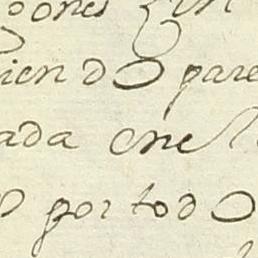 iendo pare
ada enel
por todo